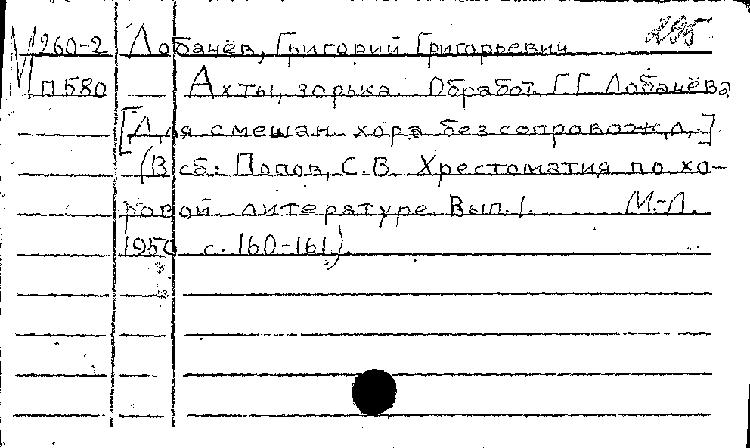 М 260-2 Лобачёв, Григорий Григорьевич
П 580 Ахты, зорька. Обработ. Г.Г. Лобачёва
[Для смешан. хора без сопровожд.]
(В сб.: Попов, С.В. Хрестоматия по хо-
ровой литературе. Вып. 1. М.-Л.
1950 с. 160-161)